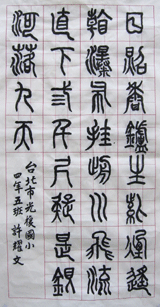 日照香鑪生紫煙遙
看瀑布挂前川飛流
直下弎千尺疑是銀
河落九天
台北市光復國小
四年五班 許耀文